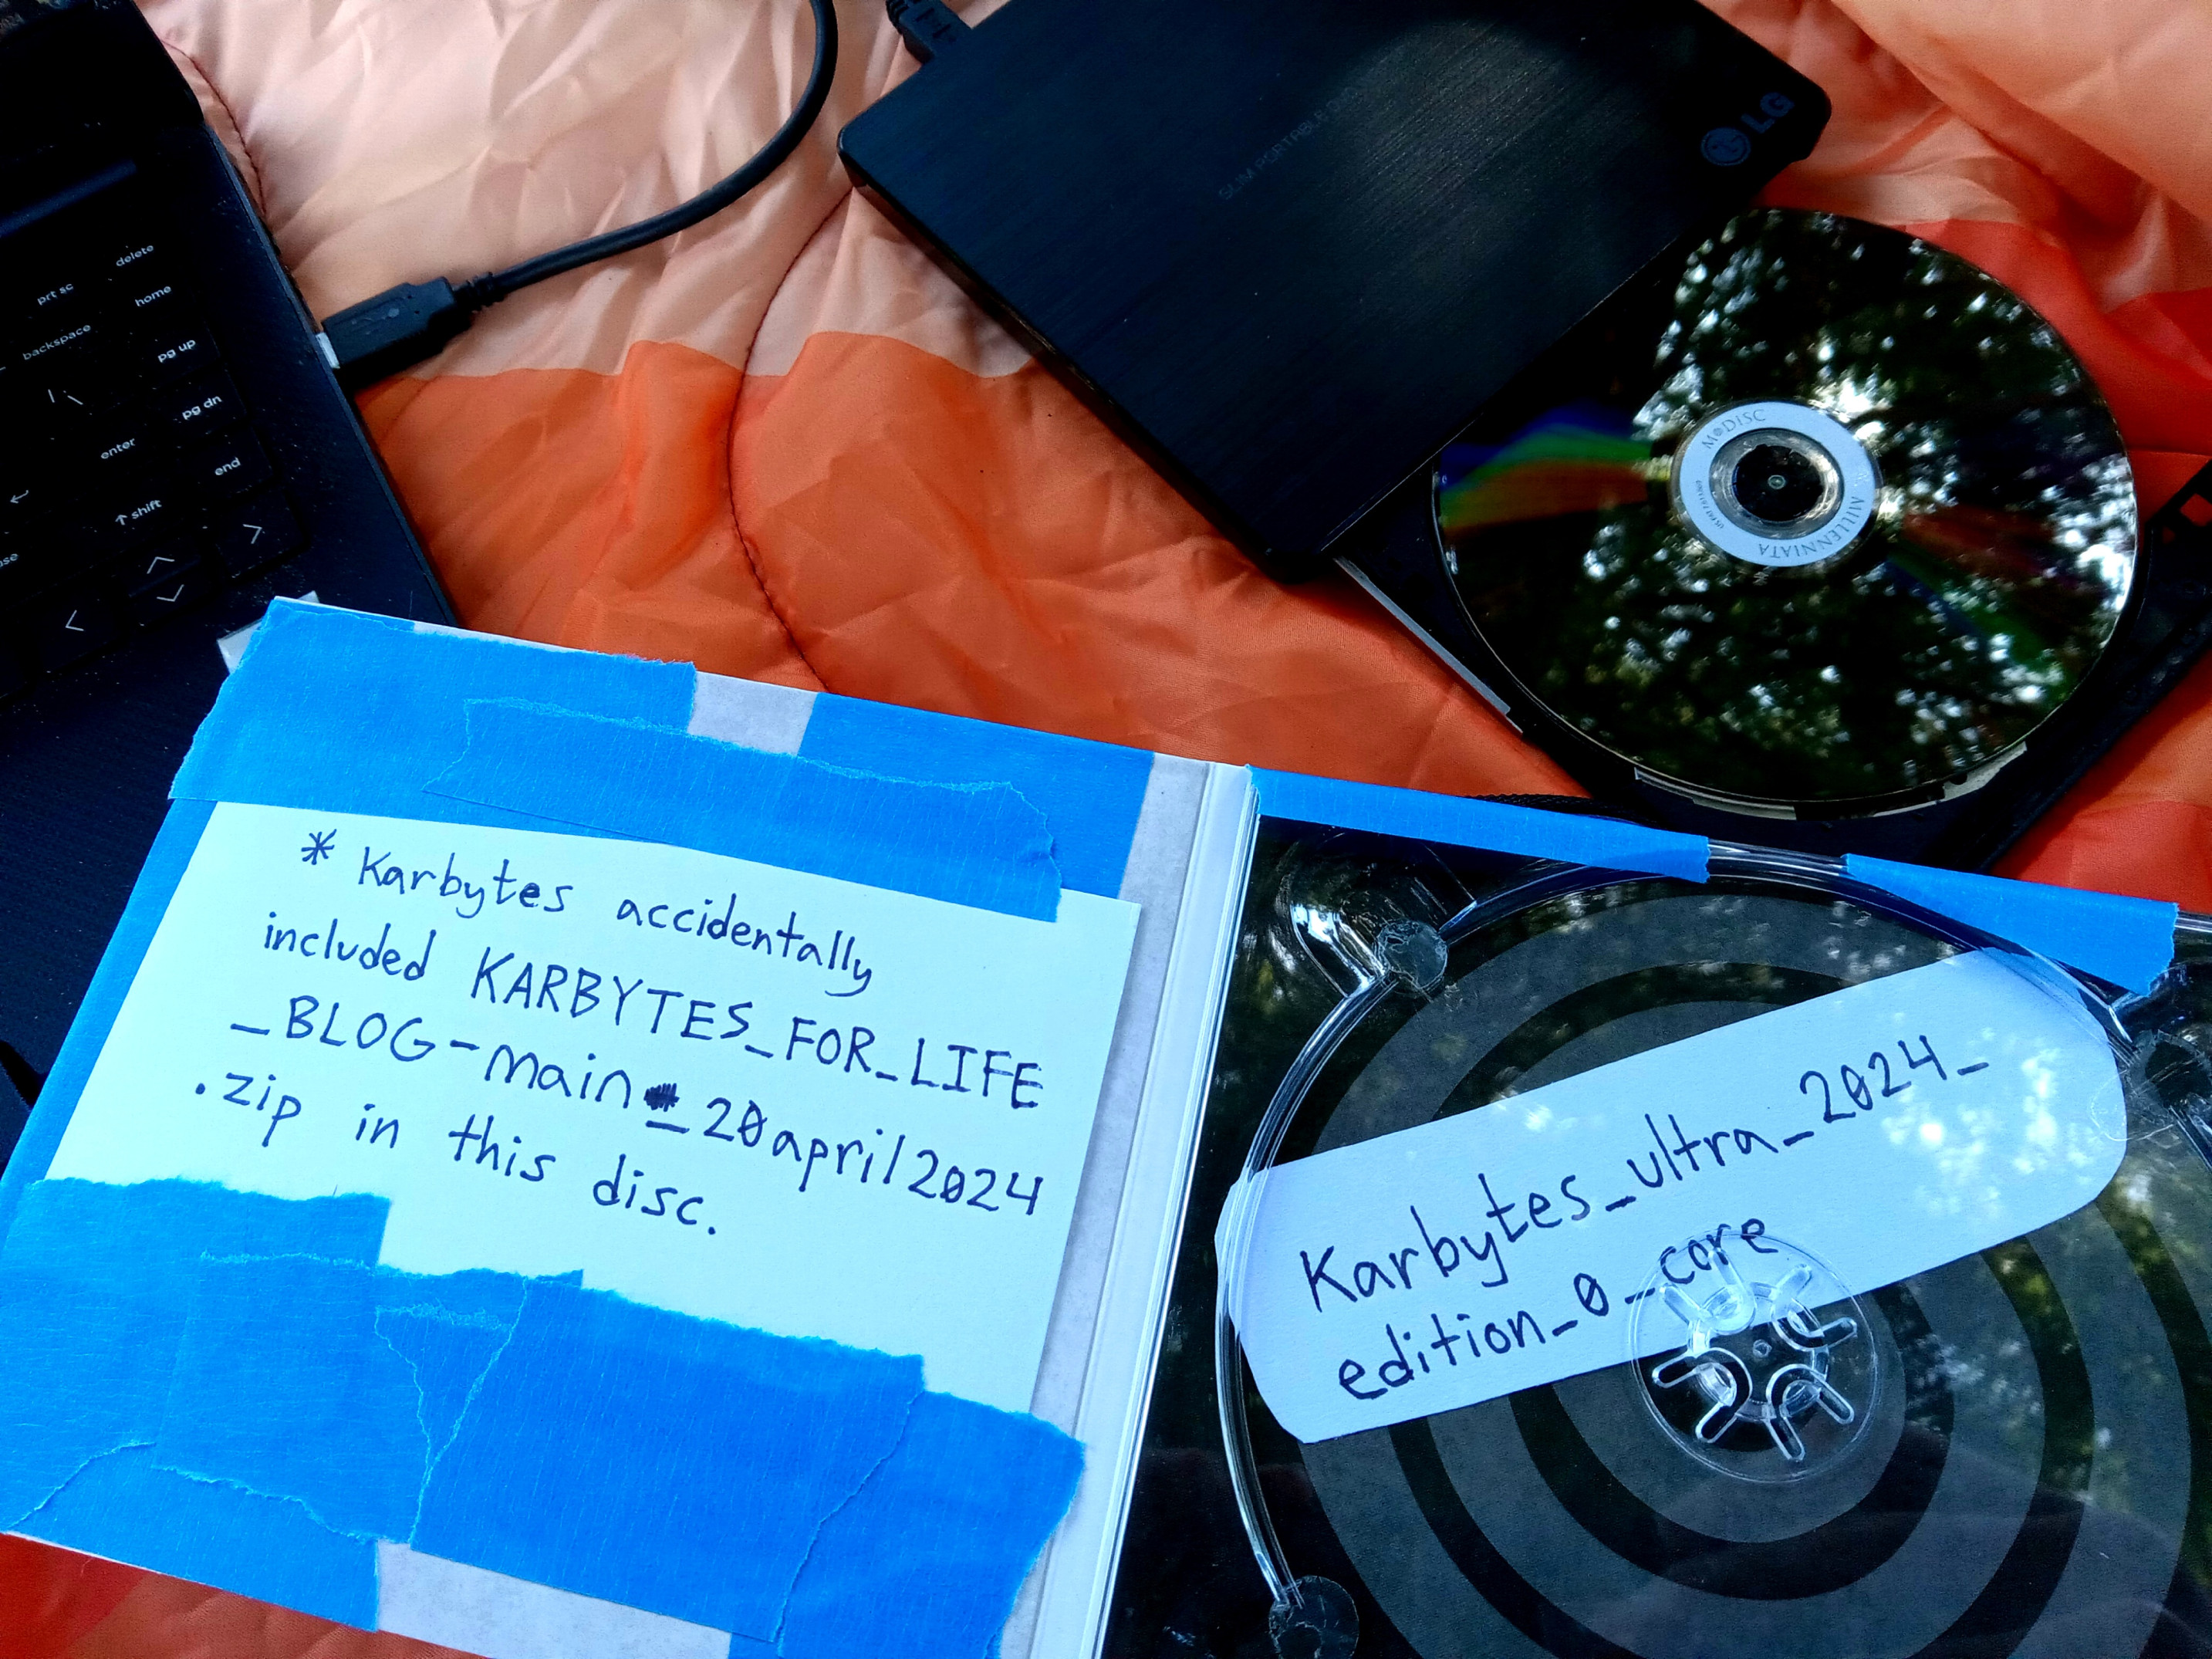 delete
prt sc
home
backspace
pg up
| \
pg dn
enter
end
↑ shift
SLIM PORTABLE
LG
M DISC
MILLENNIATA
* Karbytes accidentally
included KARBYTES_FOR_LIFE
_BLOG-main_20april2024
.zip in this disc.
Karbytes_ultra_2024_
edition_0_core